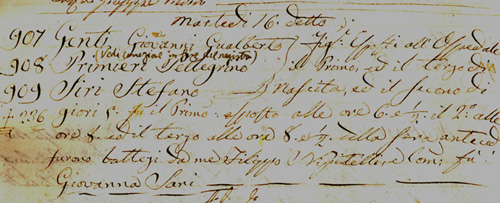 Martedì 16. detto
907 Gonti Giovanni Gualberto Figli Esposti all'Ospedale
(Vedi correzione in fine del registro)
908 Primieri Pellegrino il Primo, ed il terzo di
909 Siri Stefano Nascita, ed il secondo di
+ 256 giorni 5. fu il Primo esposto alle ore 6 e ½. il 2º. alle
ore 8. ed il terzo alle ore 8. e ½. della sera anteced
furono battez: da me Filippo Com: fù
Giovanna Sani